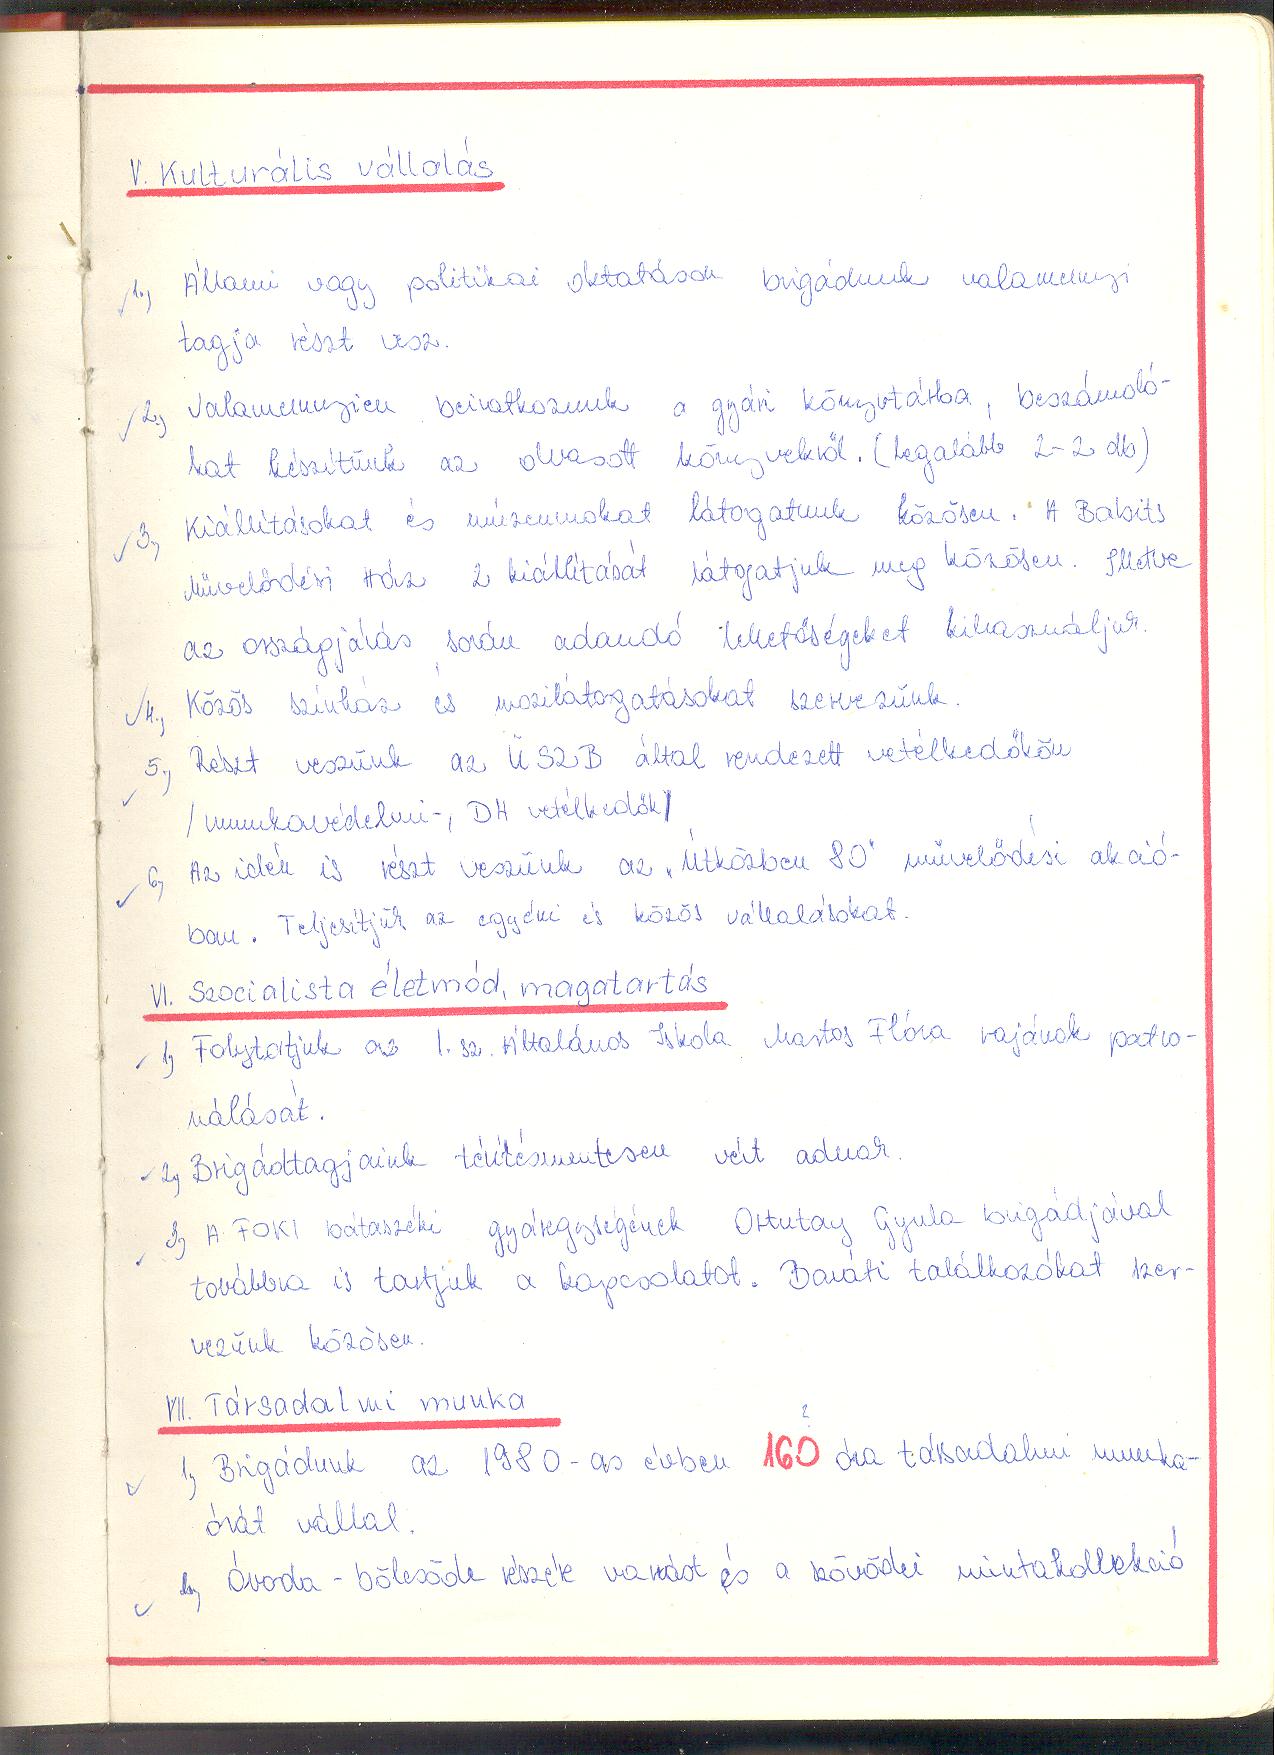 V. Kulturális vállalás
1., Állami vagy politikai oktatáson brigádunk valamennyi
tagja részt vesz.
2., Valamennyien beiratkozunk a gyári könyvtárba, beszámoló-
kat készítünk az olvasott könyvekről. (Legalább 2-2 db)
3., Kiállításokat és múzeumokat látogatunk közösen. A Babits
Művelődési Ház 2 kiállítását látogatjuk meg közösen. Illetve
az országjárás során adandó lehetőségeket kihasználjuk.
4., Közös színház és mozilátogatásokat szervezünk.
5., Részt veszünk az ÜSZB által rendezett vetélkedőkön
/munkavédelmi-, DH vetélkedők/
6., Az idén is részt veszünk az „Útközben 80" művelődési akció-
ban. Teljesítjük az egyéni és közös vállalásokat.
VI. Szocialista életmód, magatartás
1., Folytatjuk az 1. sz. Általános Iskola Martos Flóra rajának patro-
nálását.
2., Brigádtagjaink térítésmentesen vért adnak.
3., A FOKI bátaszéki gyáregységének Ortutay Gyula brigádjával
továbbra is tartjuk a kapcsolatot. Baráti találkozókat szer-
vezünk közösen.
VII. Társadalmi munka
?
1., Brigádunk az 1980-as évben 160 óra társadalmi munka-
órát vállal.
2., Óvoda-bölcsőde részére varrást és a szövődei mintakollekció